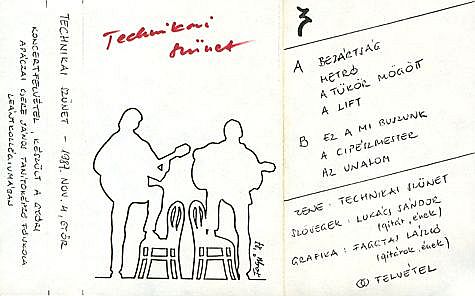 TECHNIKAI SZÜNET – 1987. NOV. 4, GYŐR
KONCERTFELVÉTEL, KÉSZÜLT A GYŐRI
APÁCZAI CSERE JÁNOS TANÍTÓKÉPZŐ FŐISKOLA
LEÁNYKOLLÉGIUMÁBAN
Technikai
szünet
3
A BEZÁRTSÁG
METRÓ
A TÜKÖR MÖGÖTT
A LIFT
B EZ A MI BUSZUNK
A CIPÉSZMESTER
AZ UNALOM
ZENE: TECHNIKAI SZÜNET
SZÖVEGEK: LUKÁCS SÁNDOR
(gitár, ének)
GRAFIKA: FAGETAI LÁSZLÓ
(gitárok, ének)
FELVÉTEL